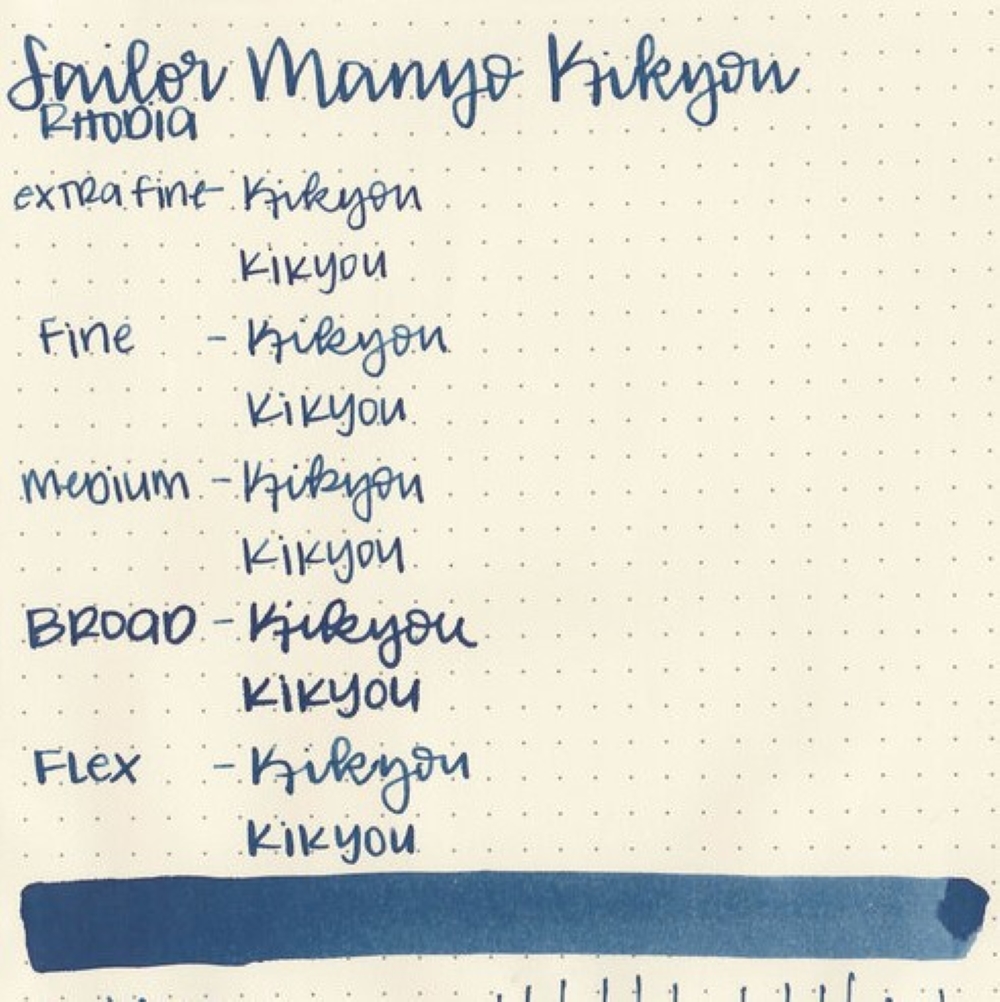 Sailor Manyo Kikyou
RHODIA
extra fine - Kikyou
Kikyou
Fine - Kikyou
Kikyou
medium - Kikyou
Kikyou
BROAD - Kikyou
Kikyou
Flex - Kikyou
Kikyou